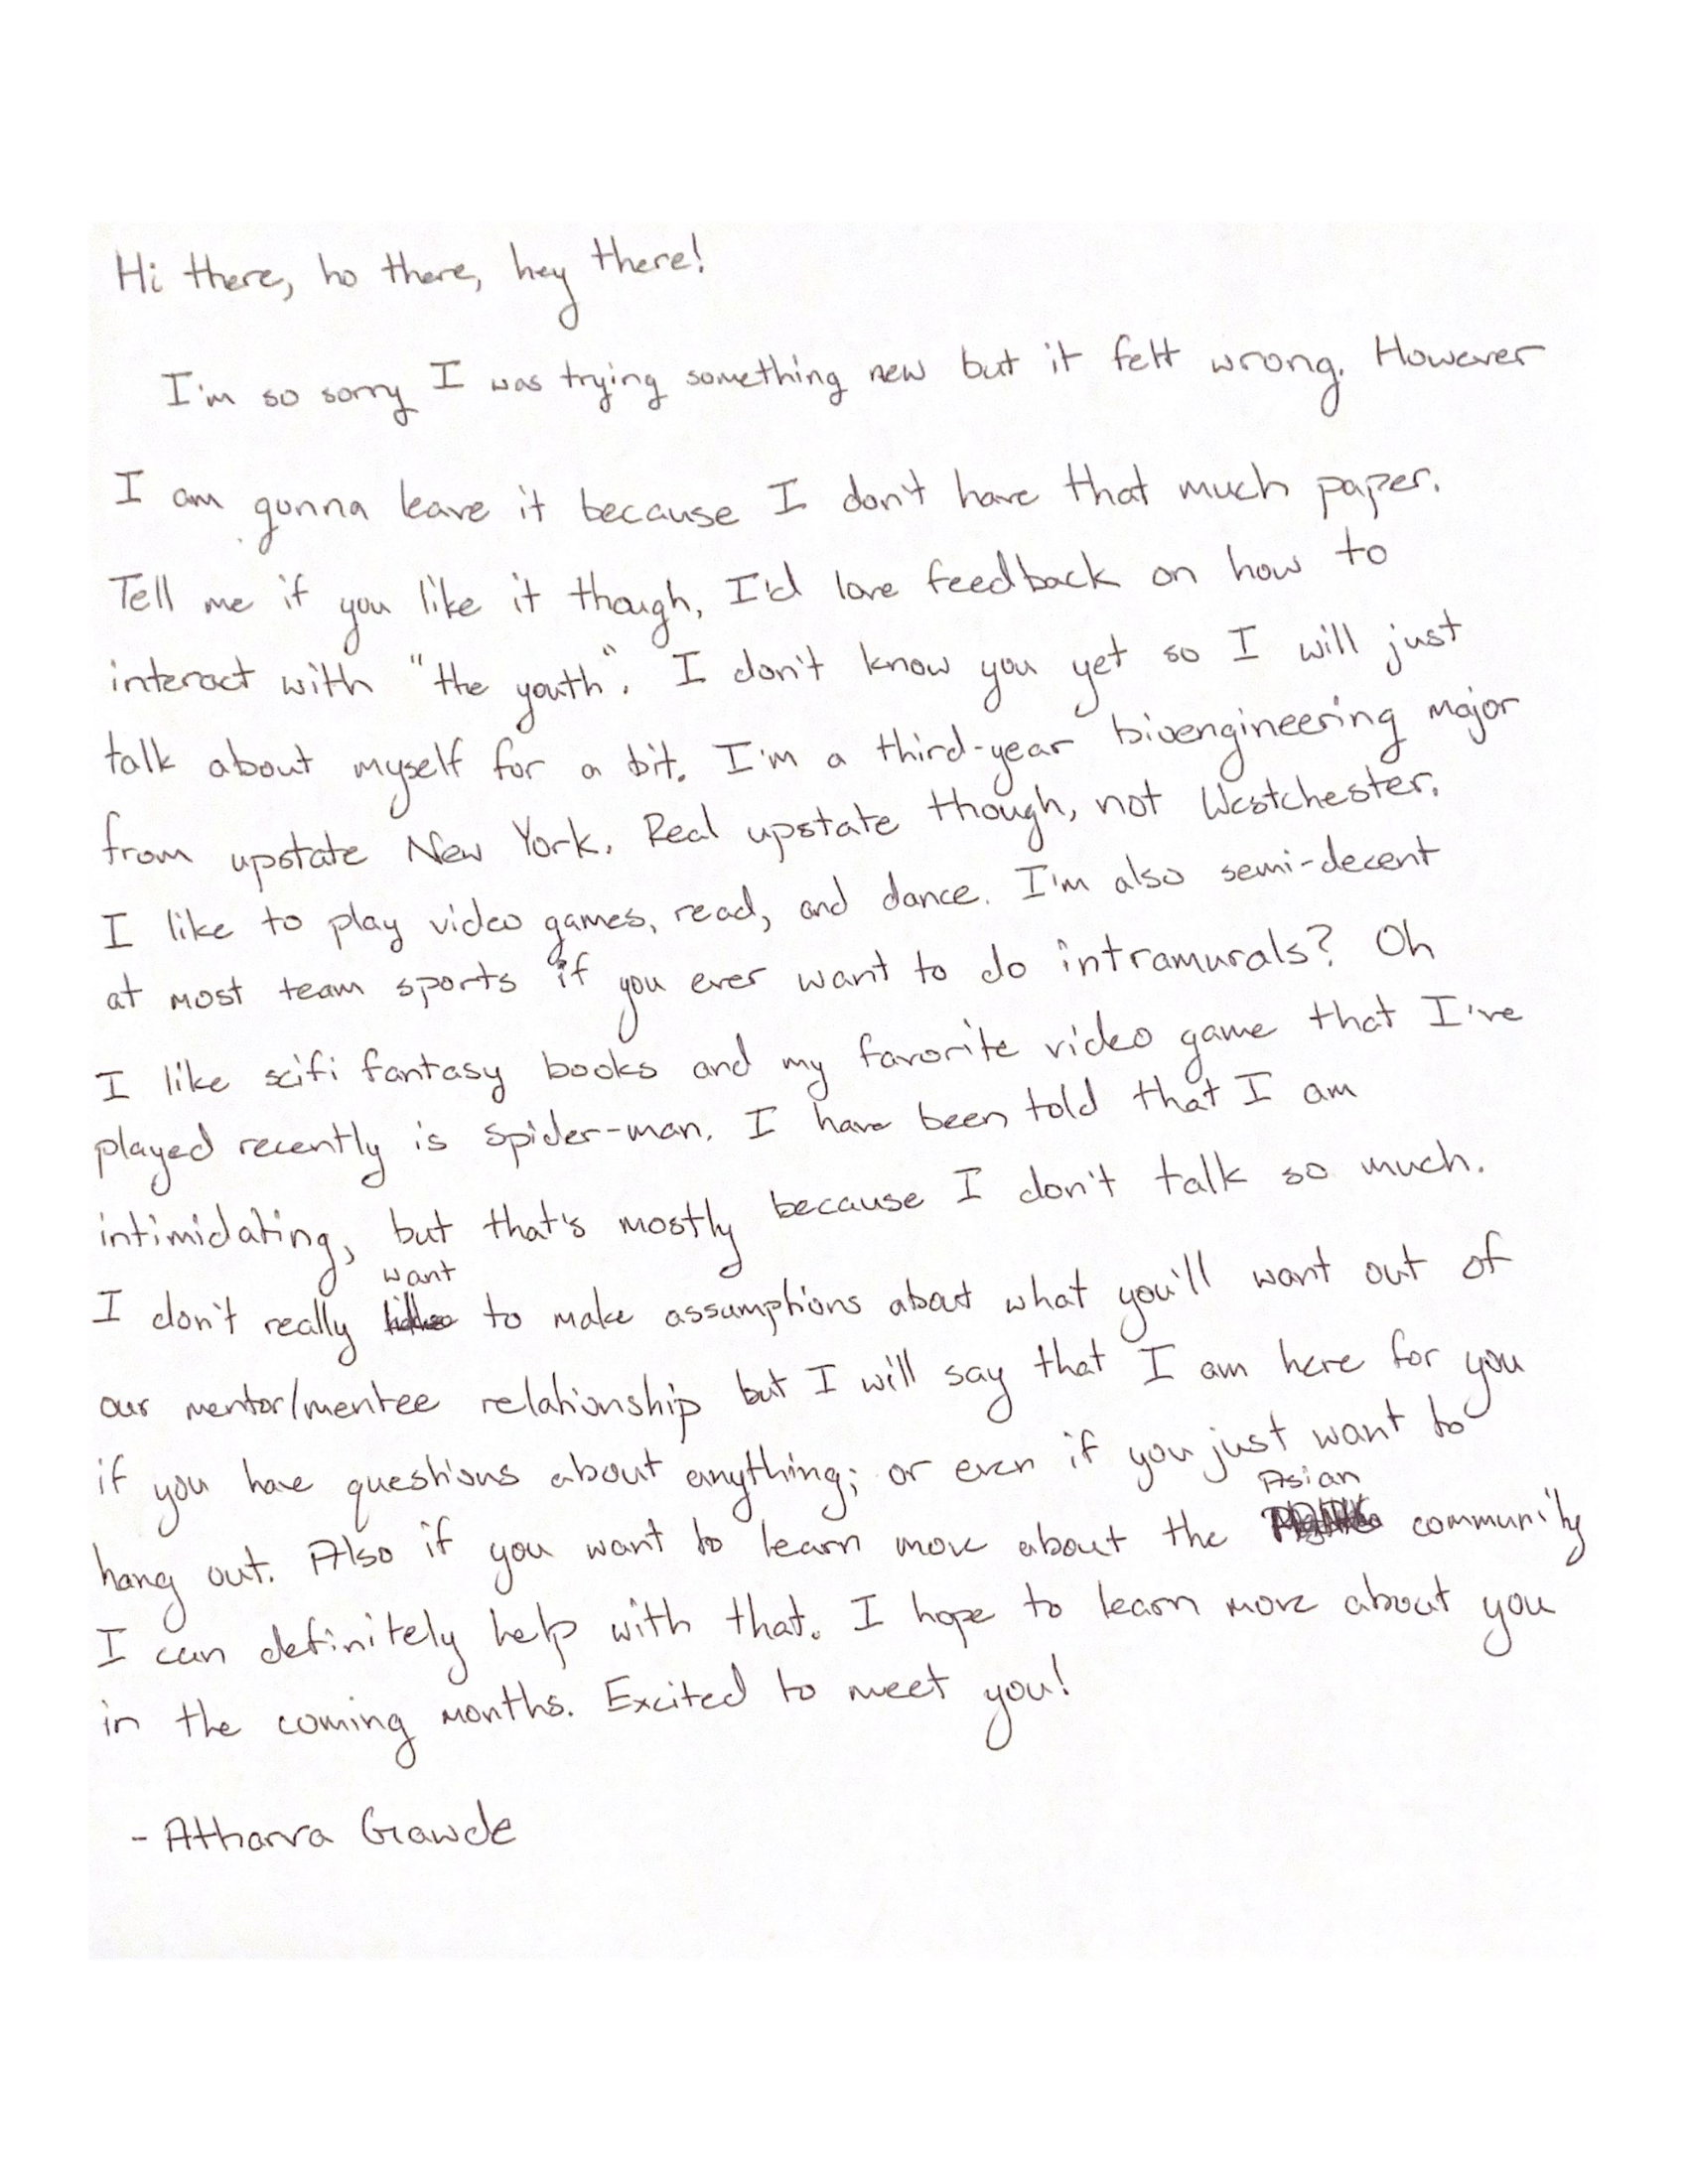 Hi there, ho there, hey there!
I'm so sorry I was trying something new but it felt wrong. However
I am gonna leave it because I don't have that much paper.
Tell me if you like it though, I'd love feedback on how to
interact with "the youth". I don't know you yet so I will just
talk about myself for a bit. I'm a third-year bioengineering major
from upstate New York. Real upstate though, not Westchester.
I like to play video games, read, and dance. I'm also semi-decent
at most team sports if you ever want to do intramurals? Oh
I like scifi fantasy books and my favorite video game that I've
played recently is Spider-man. I have been told that I am
intimidating, but that's mostly because I don't talk so much.
I don't really want to make assumptions about what you'll want out of
our mentor/mentee relationship but I will say that I am here for you
if you have questions about anything; or even if you just want to
hang out. Also if you want to learn more about the Asian community
I can definitely help with that. I hope to learn more about you
in the coming months. Excited to meet you!
- Atharva Gawde